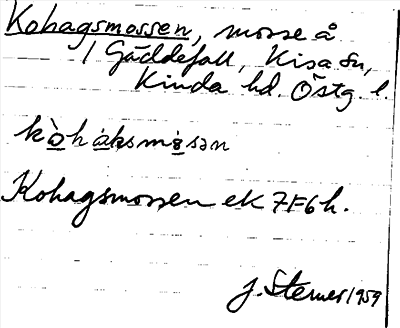 Kohagsmossen, mosse å
1 Gäddefall, Kisa sn,
Kinda hd. Östg. l.
kòhàksmòsən
Kohagsmossen ek 7F6h.
J. Sterner 1959